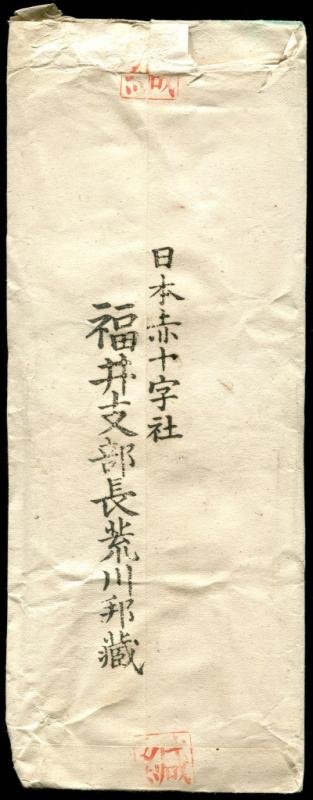 緘
日本赤十字社
福井支部長荒川邦藏
緘